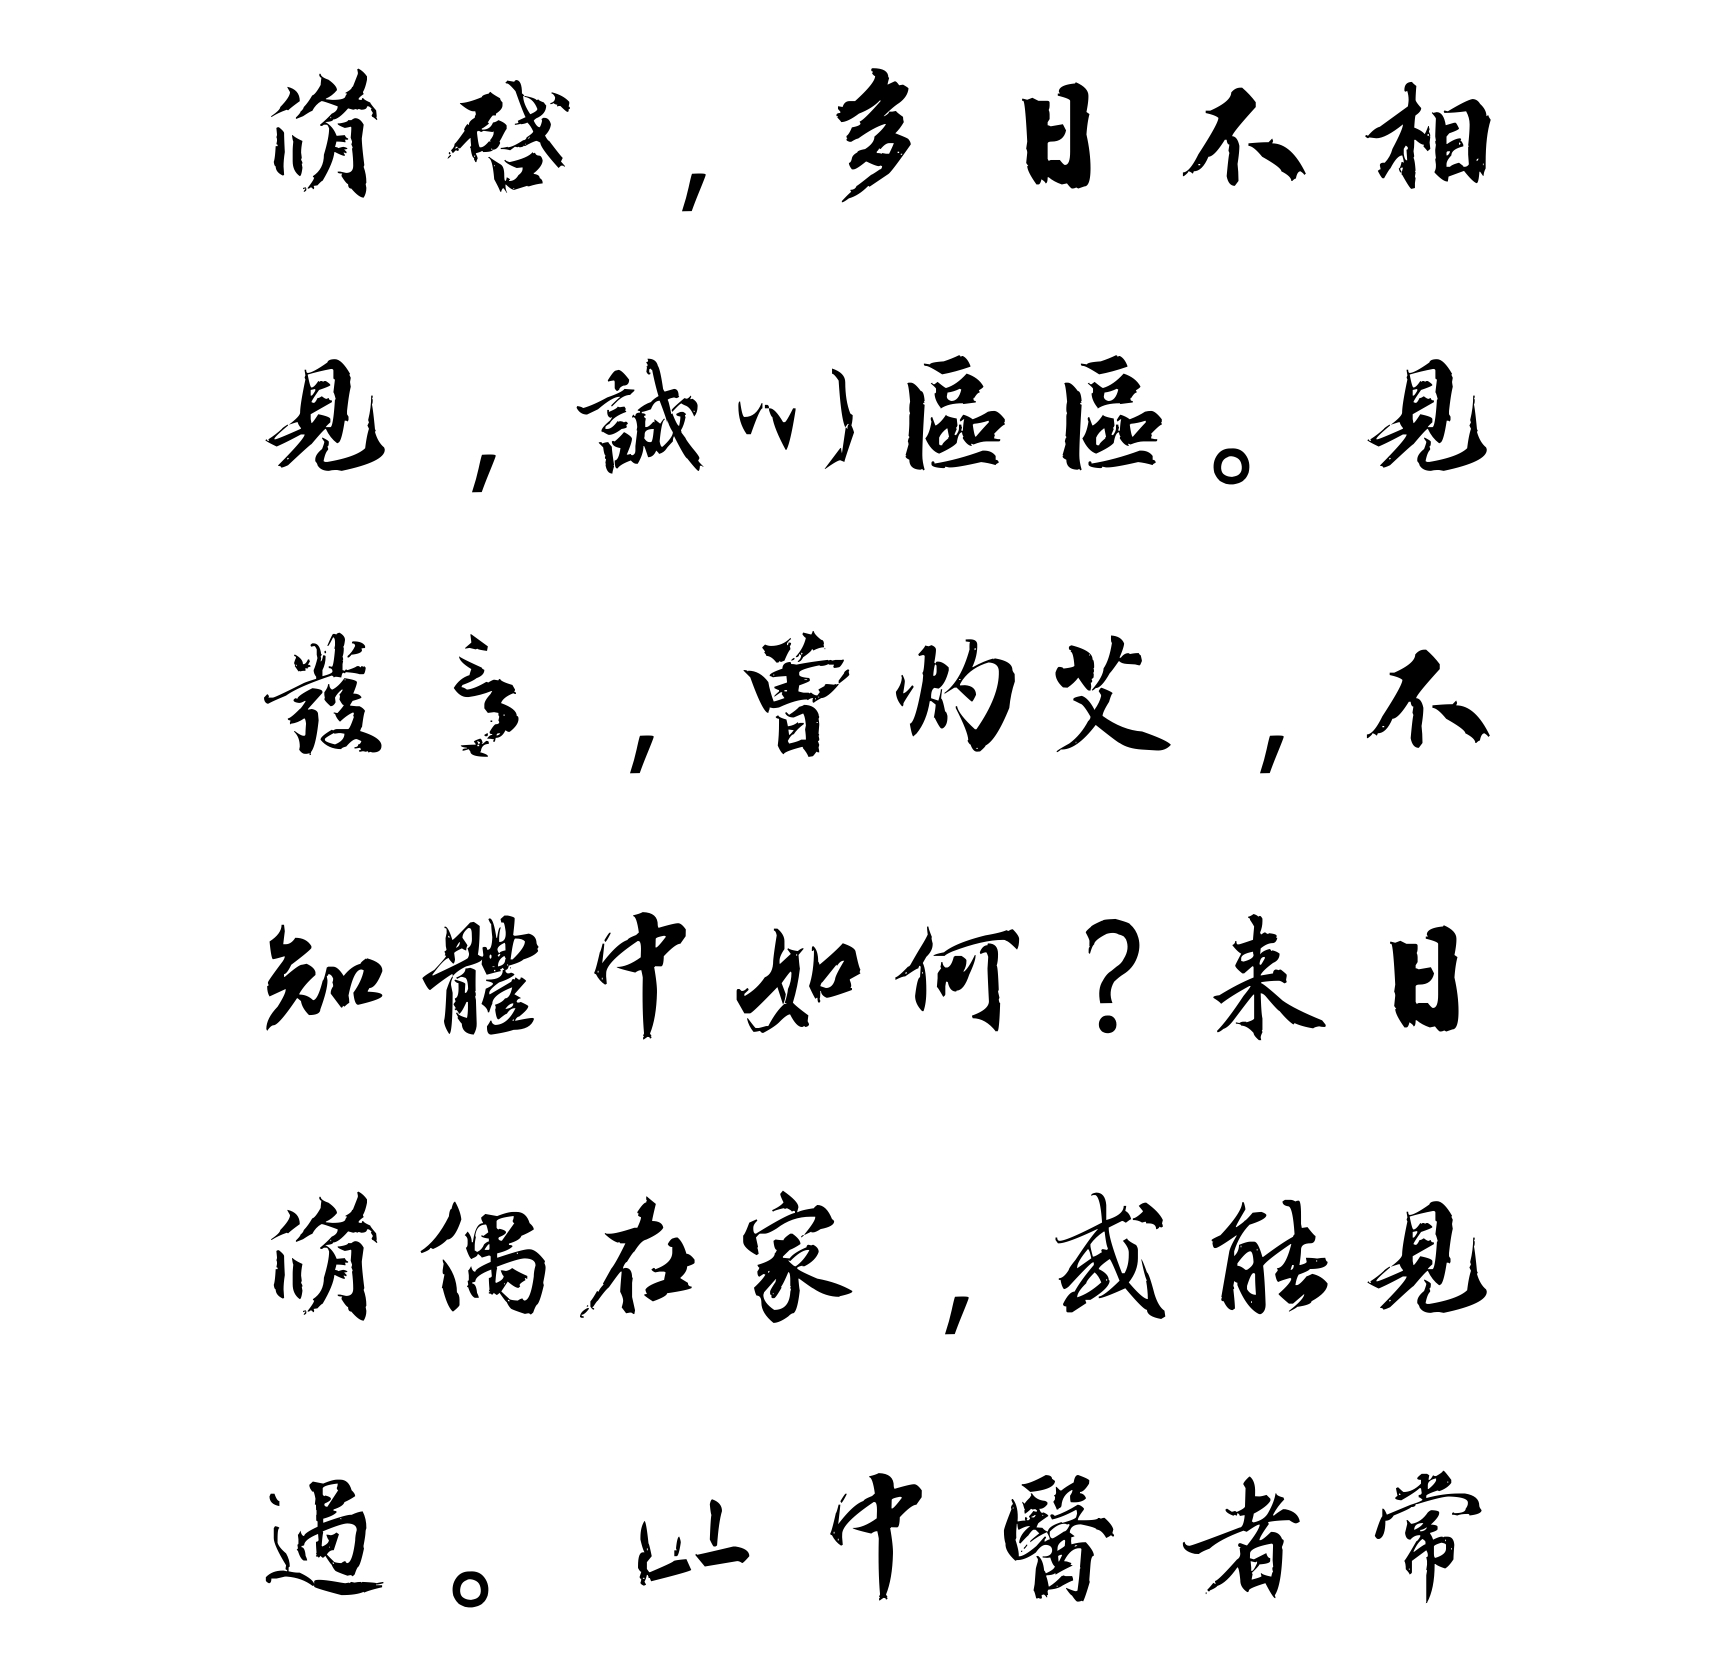 脩啓，多日不相
見，誠以區區。見
發言，曾灼艾，不
知體中如何？来日
脩偶在家，或能見
過。此中醫者常